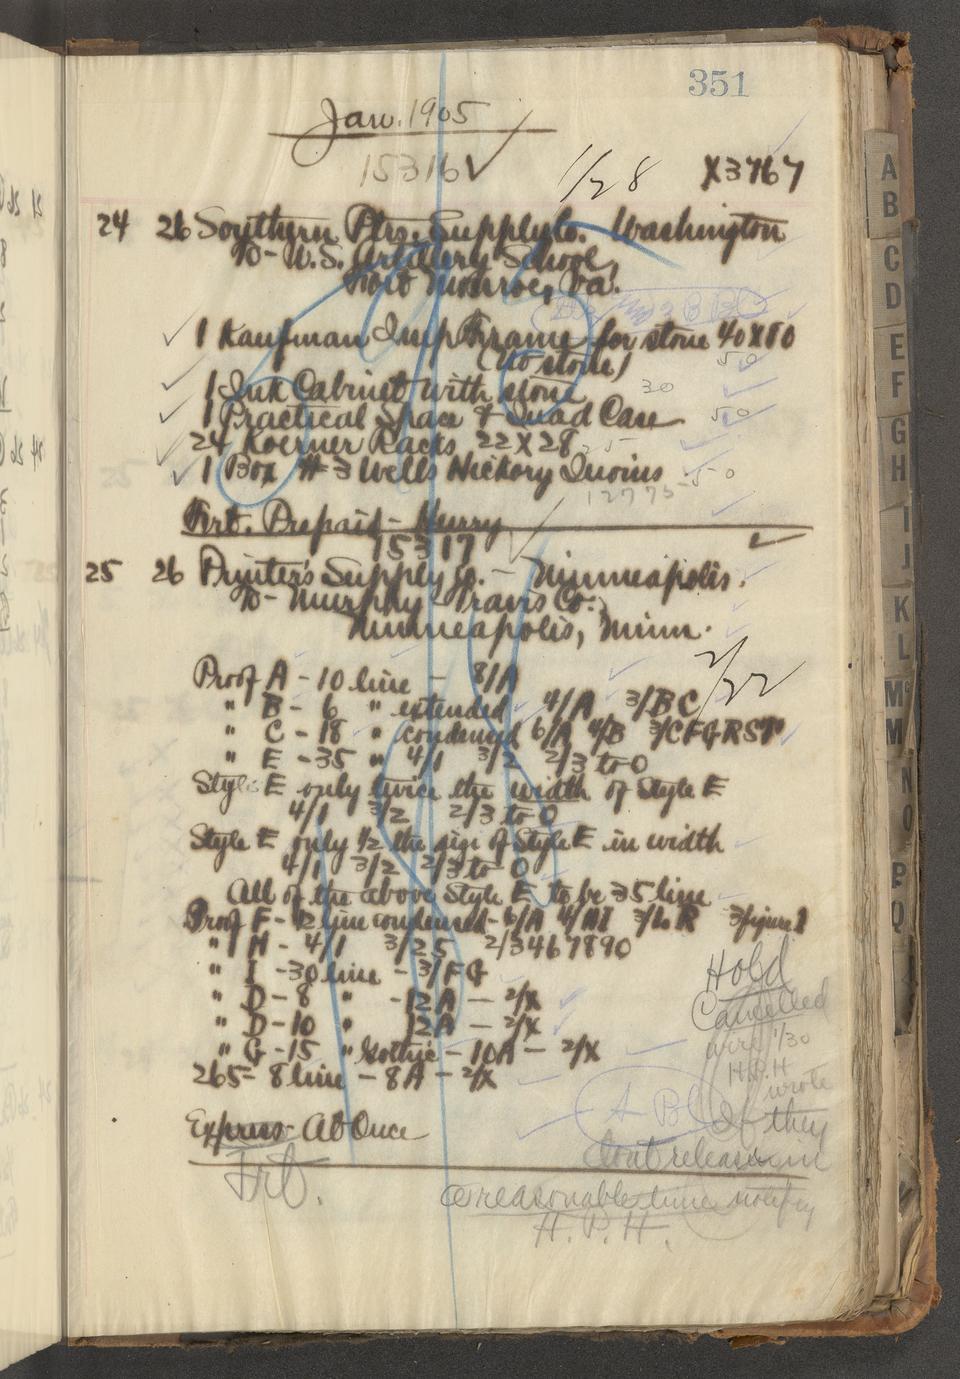 351
Jan. 1905
15316 ✓
1/28 X3767
24 26 Southern Ptrs. Supply Co. Washington
To - U.S. Artillery School,
Fort Monroe, Va.
1 Kaufman Imp Frame for stone 40X60
(No stone) 50
1 Ink Cabinet with stone 30
1 Practical Space & Quad Case 50
24 Koerner Racks, 22X28
1 Box #3 Wells Hickory Quoins 50
12775
Frt. Prepaid - Hurry
15317
25 26 Printer's Supply Co. - Minneapolis.
To - Murphy Travis Co.,
Minneapolis, Minn.
2/22
Proof A - 10 line - 8/A
" B - 6 " extended 4/A 3/BC
" C - 18 " condensed 6/A 4/B 3/CFGRST
" E - 35 " 4/1 3/2 2/3 to 0
Style E only twice the width of Style E
4/1 3/2 2/3 to 0
Style E only 1/2 the size of Style E in width
4/1 3/2 2/3 to 0
All of the above Style E to be 35 line
Proof F - 12 line condensed - 6/A 4/HI 3/L R 3/figure 1
" H - 4/1 3/25 2/3467890
" I - 30 line - 3/FG
" D - 8 " - 12A - 2/X
" D - 10 " 12A - 2/X
" G - 15 " Gothic - 10A - 2/X
265 - 8 line - 8A - 2/X
Hold
Cancelled
wire 1/30
H.P.H
wrote
ABC If they
Express At Once
dont release in
Frt.
a reasonable time notify
H.P.H.
A
B
C
D
E
F
G
H
I
J
K
L
Mc
M
N
O
P
Q